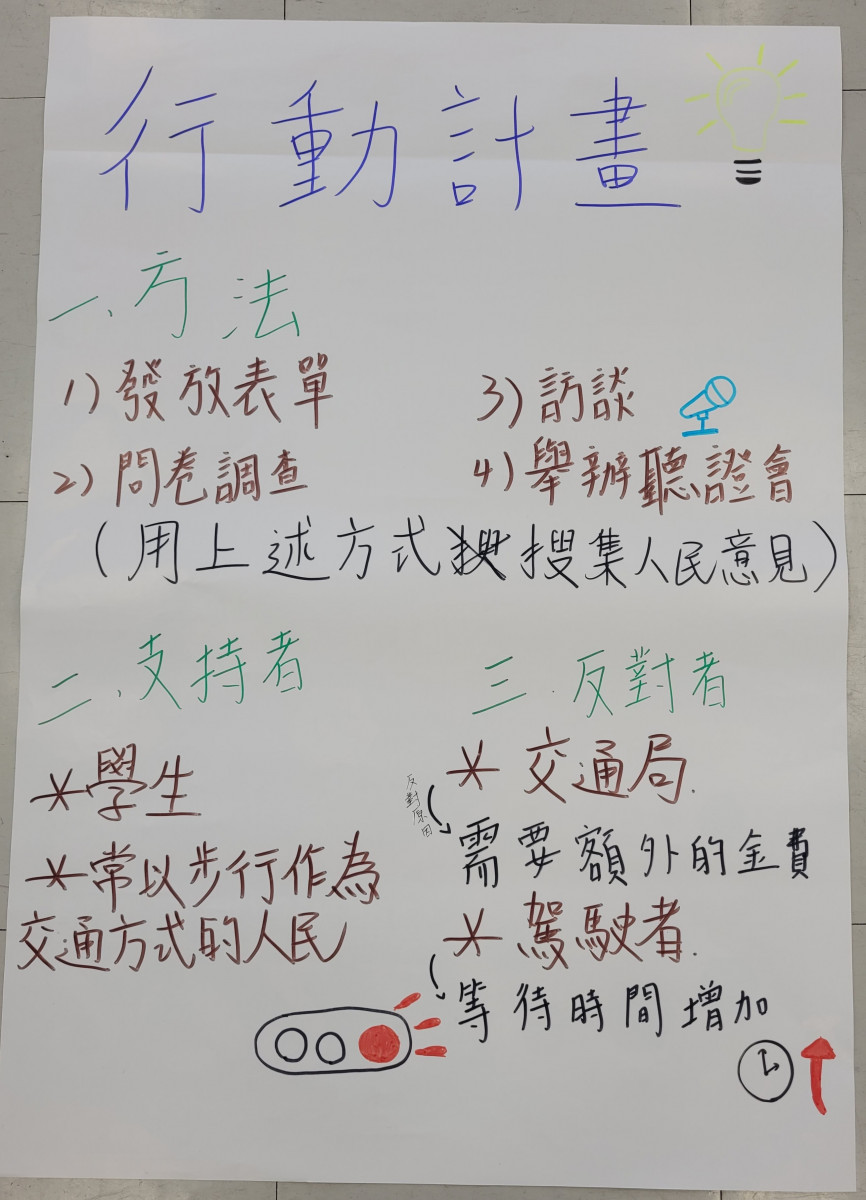 行動計畫
一、方法
1) 發放表單
2) 問卷調查
3) 訪談
4) 舉辦聽證會
(用上述方式搜集人民意見)
二、支持者
*學生
*常以步行作為
交通方式的人民
三、反對者
* 交通局.
反對原因
需要額外的金費
* 駕駛者.
等待時間增加